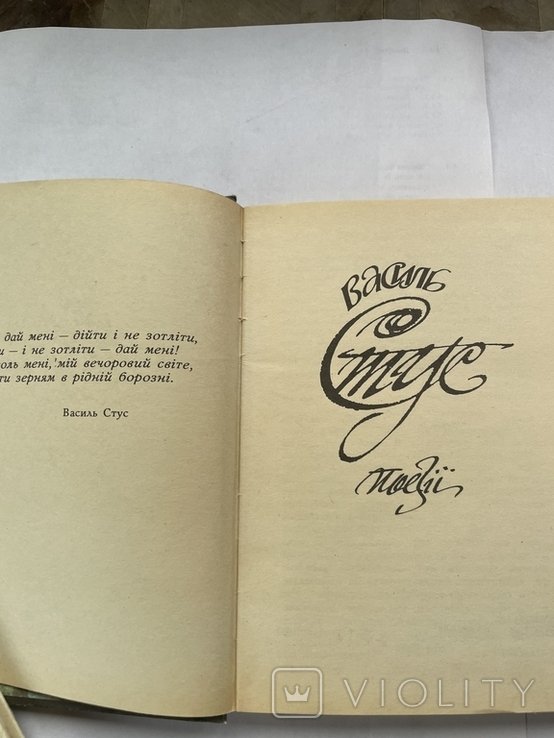 дай мені — дійти і не зотліти,
и — і не зотліти — дай мені!
оль мені, мій вечоровий світе,
ти зерням в рідній борозні.
Василь Стус
Василь
Стус
поезії
VIOLITY